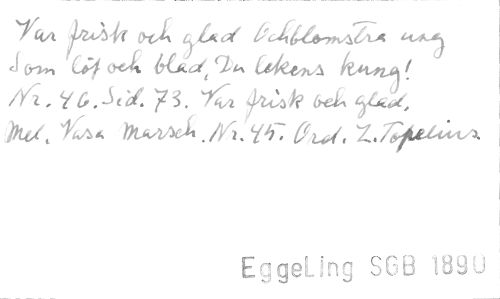 Var frisk och glad Och blomstra ung
Som löf och blad, Du lekens kung!
Nr. 46. Sid. 73. Var frisk och glad.
Mel. Vasa Marsch. Nr. 45. Ord. Z. Topelius.
EggeLing SGB 1890